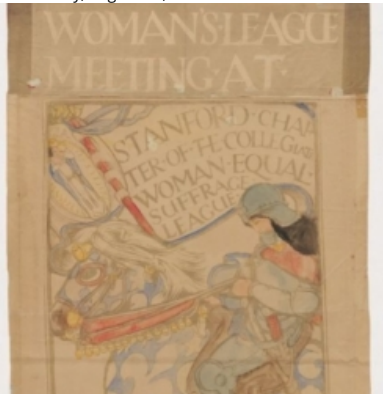 WOMAN'S·LEAGUE
MEETING·AT·
STANFORD·CHAP
TER·OF·THE·COLLEGIATE
WOMAN·EQUAL·
SUFFRAGE
LEAGUE·